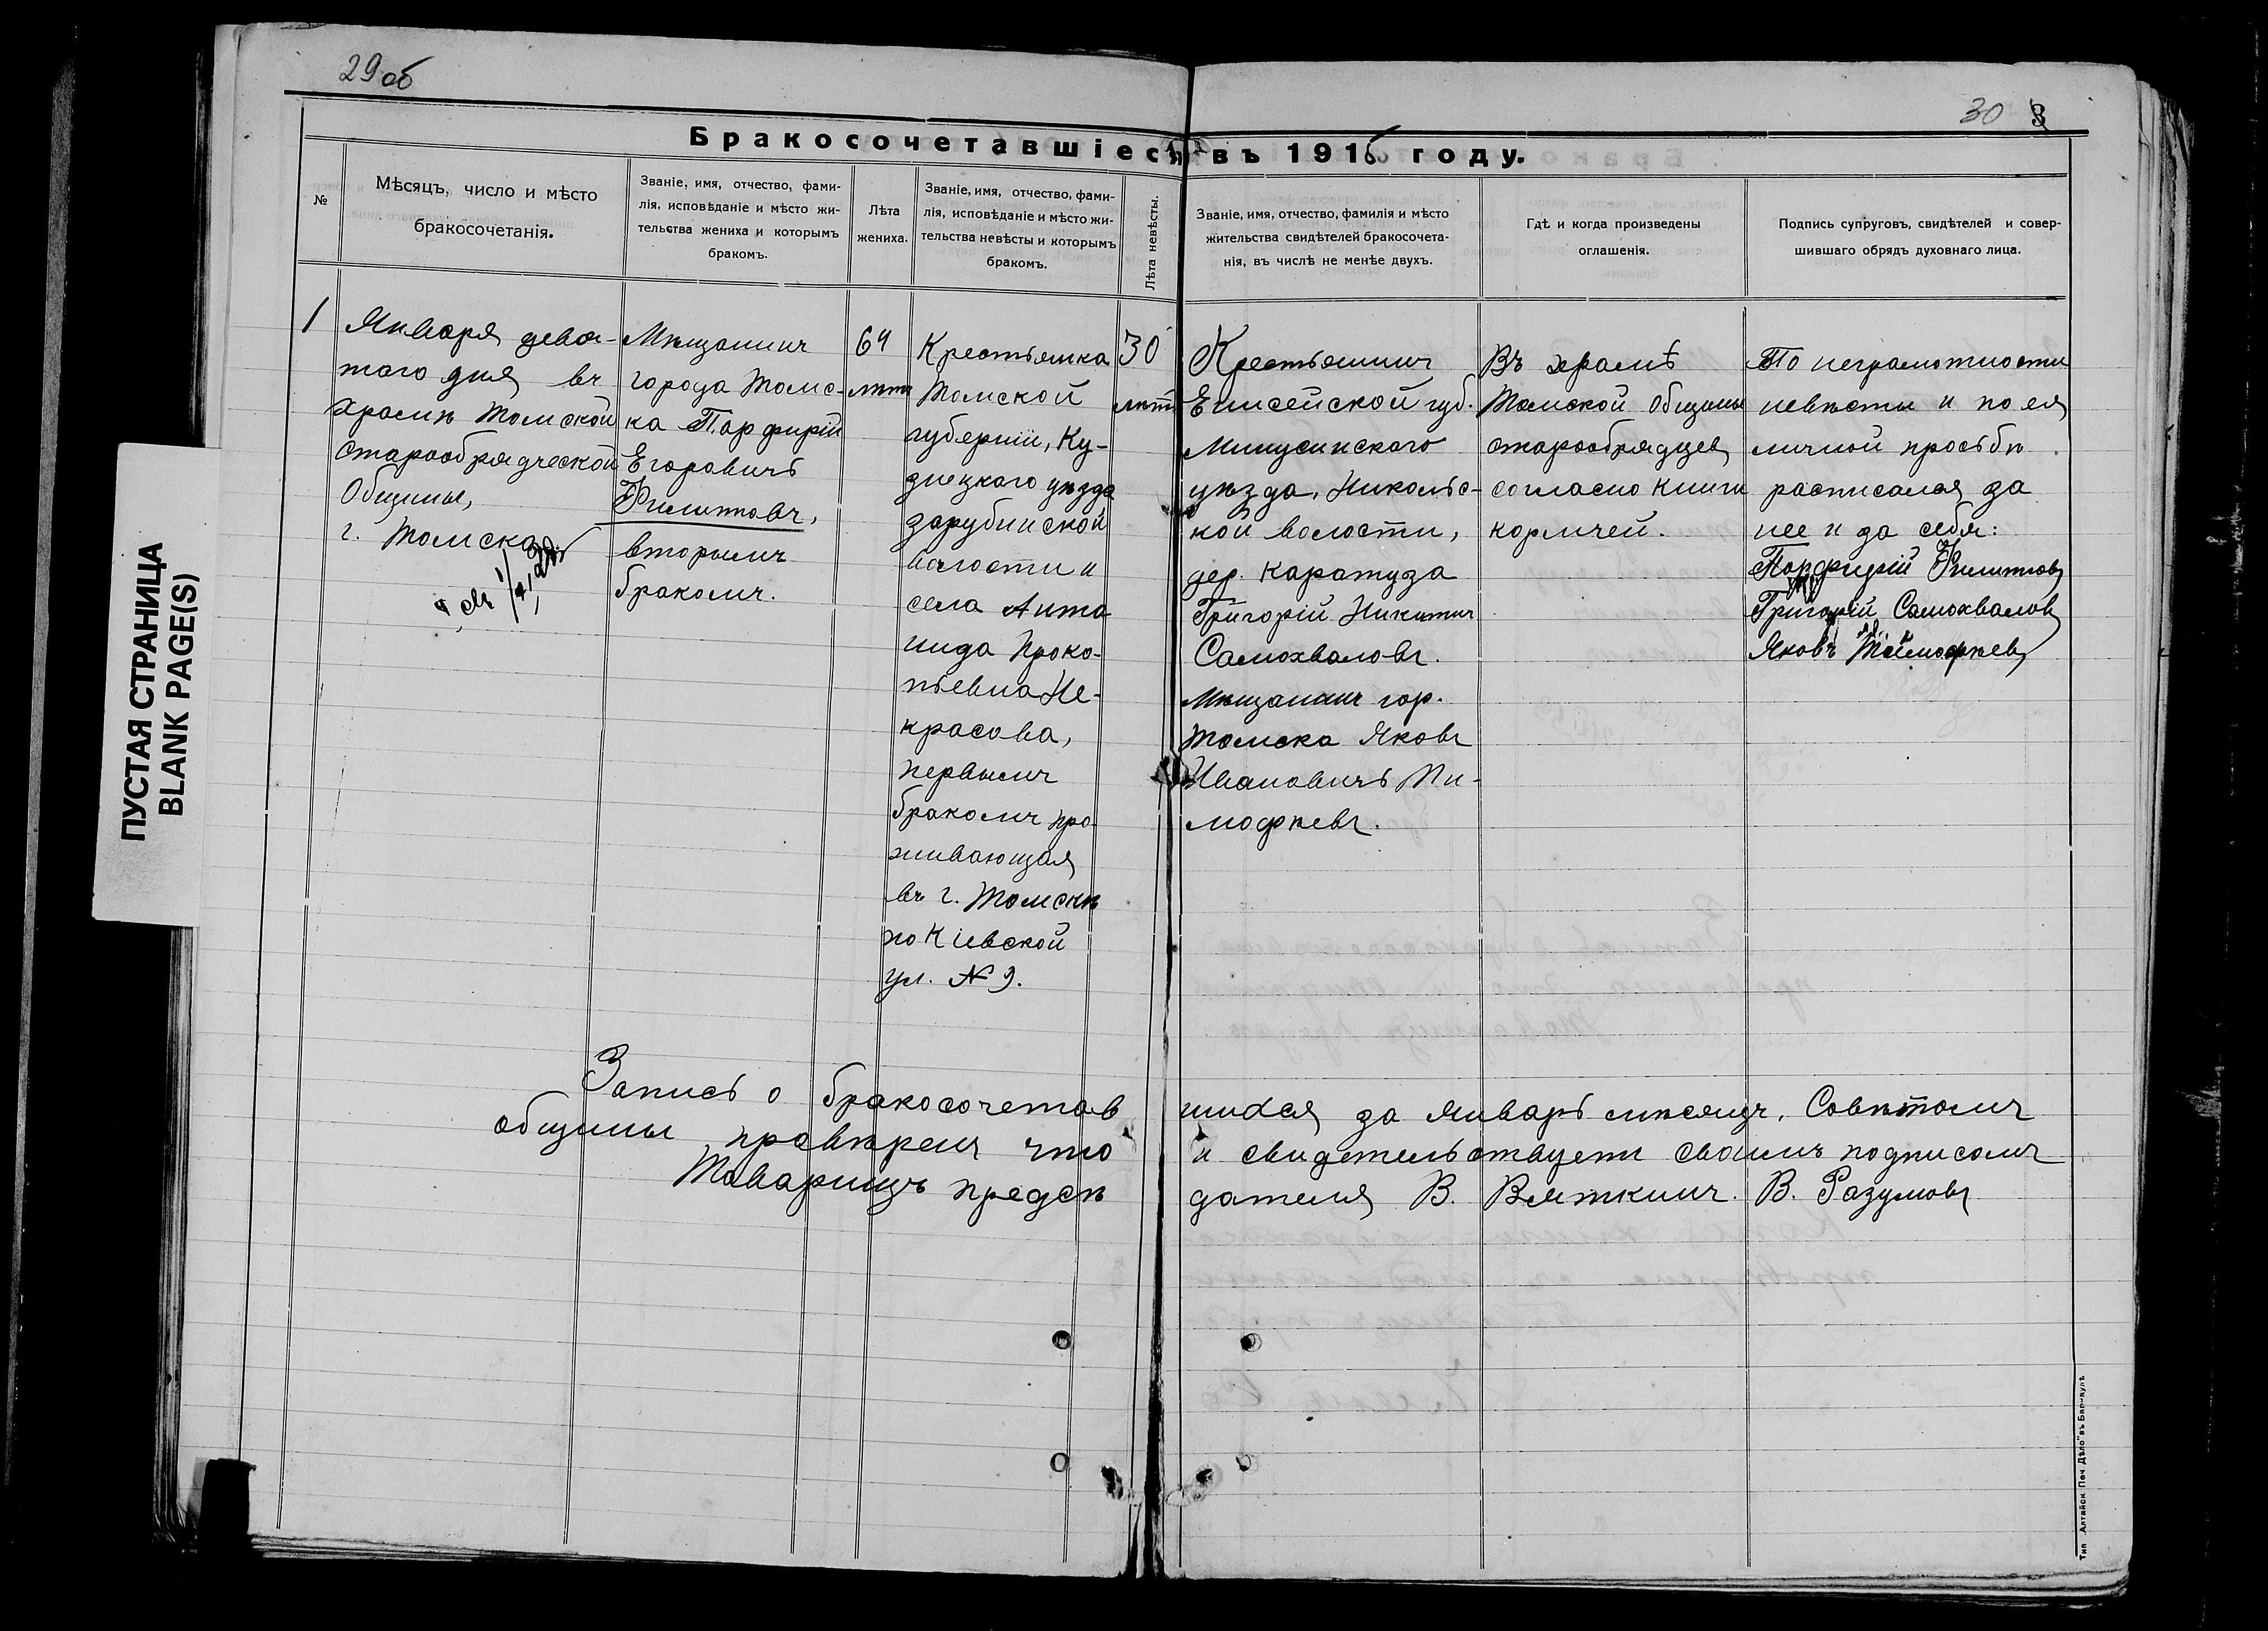 29 об
30 3
Бракосочетавшіеся въ 1916 году.
№
Мѣсяцъ, число и мѣсто
бракосочетанія.
Званіе, имя, отчество, фами-
лія, исповѣданіе и мѣсто жи-
тельства жениха и которымъ
бракомъ.
Лѣта
жениха.
Званіе, имя, отчество, фами-
лія, исповѣданіе и мѣсто жи-
тельства невѣсты и которымъ
бракомъ.
Лѣта невѣсты.
Званіе, имя, отчество, фамилія и мѣсто
жительства свидѣтелей бракосочета-
нія, въ числѣ не менѣе двухъ.
Гдѣ и когда произведены
оглашенія.
Подпись супруговъ, свидѣтелей и совер-
шившаго обрядъ духовнаго лица.
1
Января девя-
таго дня въ
храмѣ Томской
Старообрядческой
Общины,
г. Томска
Мѣщанинъ
города Томс-
ка Парфирій
Егоровичъ
Филитовъ,
вторымъ
бракомъ.
64
лѣтъ
Крестьянка
Томской
губерніи, Ку-
знецкаго уѣзда
зарубинской
волости и
села Анто
нида Проко-
пьевна Не-
красова,
первымъ
бракомъ про
живающая
въ г. Томскѣ
по Кіевской
ул. № 9.
30
лѣтъ
Крестьянинъ
Енисейской губ.
Минусинскаго
уѣзда, Никольс-
кой волости,
дер. Каратуза
Григорій Никитич
Самохваловъ.
Мѣщанинъ гор.
Томска Яковъ
Ивановичъ Ти-
мофѣевъ.
Въ храмѣ
Томской Общины
старообрядцев
согласно книги
кормчей.
По неграмотности
невѣсты и по ея
личной просьбѣ
расписался за
нее и за себя:
Парфирій Филитов
Григорій Самохвалов
Яковъ Тимофѣев
Запись о бракосочетав
шихся за январь мѣсяцъ, Совѣтомъ
общины провѣрена что
и свидетельствуетъ своимъ подписомъ
Товарищъ предсѣ
дателя В. Вяткинъ. В. Разумовъ
ПУСТАЯ СТРАНИЦА
BLANK PAGE(S)
Тип. „Алтайск. Печ. Дѣло" въ Барнаулѣ